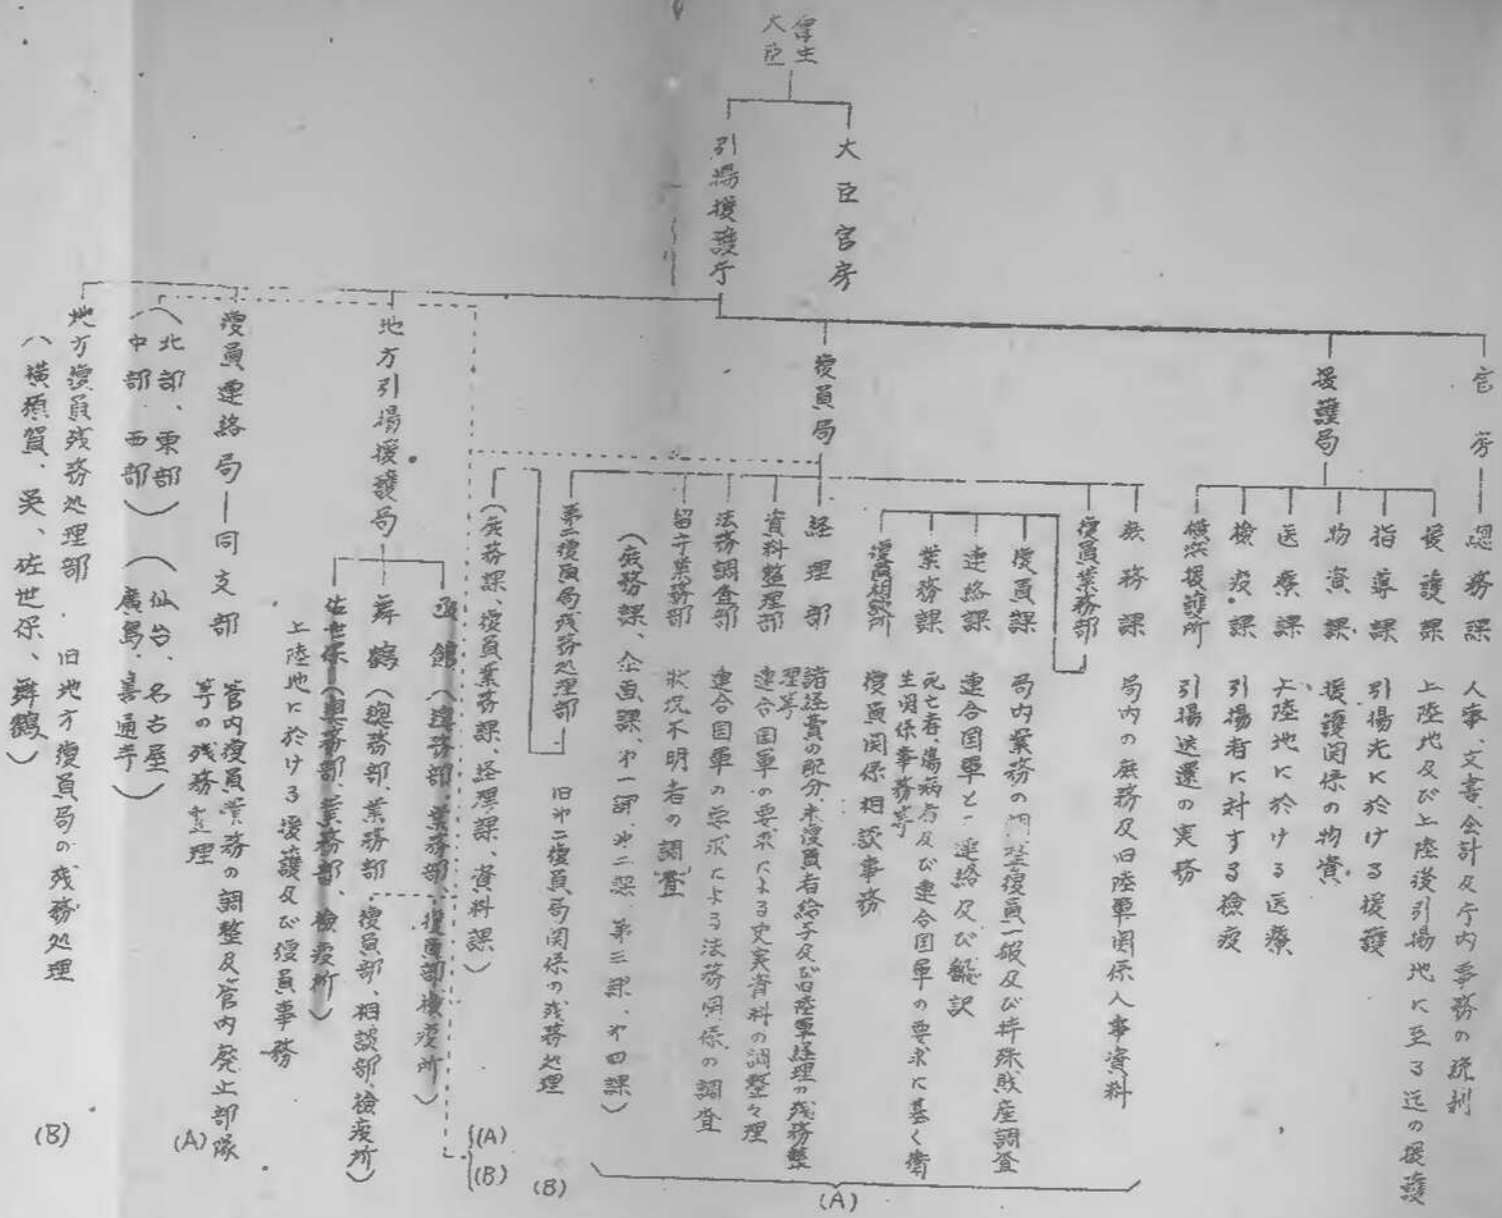 厚生
大臣
大臣官房
引揚援護庁
官房
総務課
人事、文書、会計及庁内事務の統制
援護局
援護課
上陸地及び上陸後引揚地に至る迄の援護
指導課
引揚先に於ける援護
物資課
援護関係の物資
医療課
上陸地に於ける医療
検疫課
引揚者に対する検疫
横浜援護所
引揚送還の実務
復員局
庶務課
局内の庶務及旧陸軍関係人事資料
復員業務部
復員課
局内業務の調整復員一般及び特殊財産調査
連絡課
連合国軍との連絡及び飜訳
業務課
死亡者、傷病者及び連合国軍の要求に基く衛
生関係事務等
復員相談所
復員関係相談事務
経理部
諸経費の配分、未復員者給予及び旧陸軍経理の残務整
理等
資料整理部
連合国軍の要求による史実資料の調整々理
法務調査部
連合国軍の要求による法務関係の調査
留守業務部
状況不明者の調査
(庶務課、企画課、才一課、才二課、第三課、才四課)
(A)
第二復員局残務処理部
旧才二復員局関係の残務処理
(庶務課、復員業務課、経理課、資料課)
(B)
地方引揚援護局
函館(總務部、業務部、復員部、検疫所)
舞鶴(總務部、業務部、復員部、相談部、検疫所)
佐世保(總務部、業務部、検疫所)
上陸地に於ける援護及び復員事務
(A)
(B)
復員連絡局―同支部
管内復員業務の調整及管内廃止部隊
等の残務整理
(北部、東部
中部、西部)
(仙台、名古屋
廣島、善通寺)
(A)
地方復員残務処理部
旧地方復員局の残務処理
(横須賀、呉、佐世保、舞鶴)
(B)